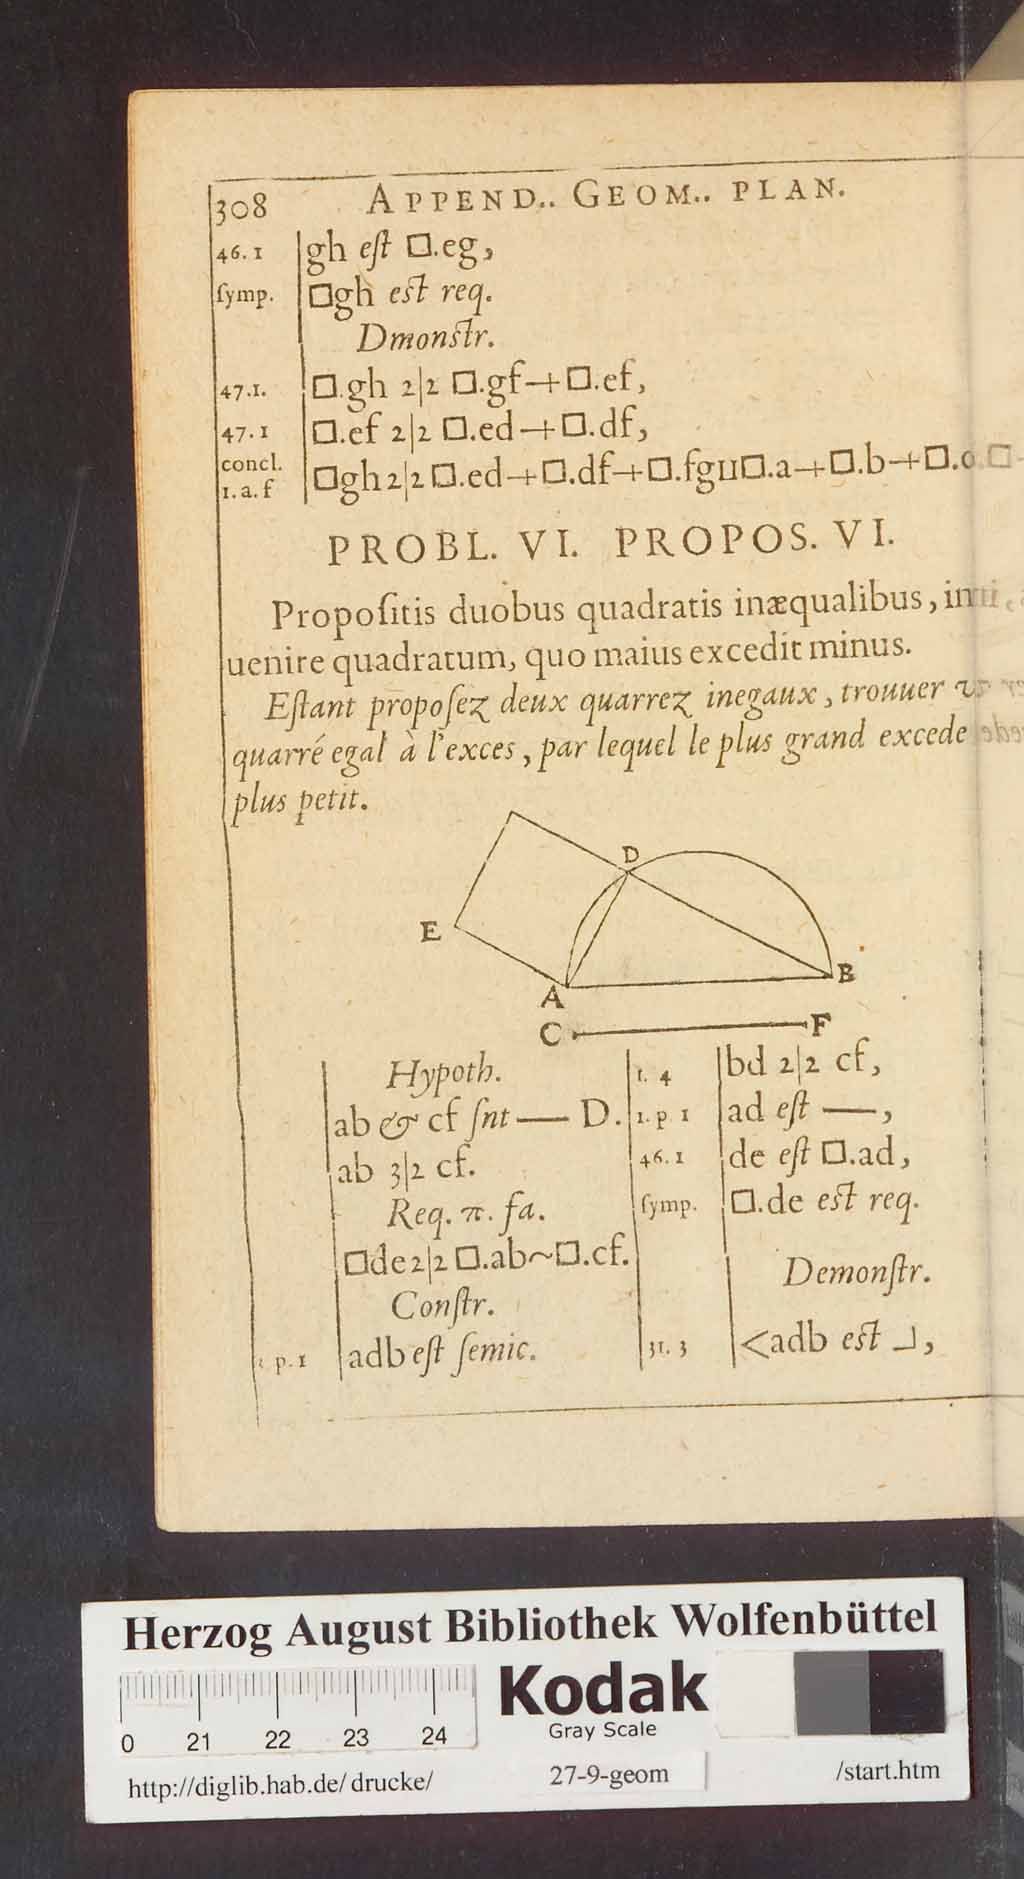 308 APPEND.. GEOM.. PLAN.
46. 1 gh eſt □.eg,
ſymp. □gh eſt req.
Dmonſtr.
47.1. □.gh 2|2 □.gf+□.ef,
47. 1 □.ef 2|2 □.ed+□.df,
concl.
1. a. f □gh 2|2 □.ed+□.df+□.fgп□.a+□.b+□.
PROBL. VI. PROPOS. VI.
Propoſitis duobus quadratis inæqualibus, in
uenire quadratum, quo maius excedit minus.
Eſtant propoſez deux quarrez inegaux, trouuer
quarré egal à l'exces, par lequel le plus grand excede
plus petit.
D
E
A
B
C F
Hypoth.
ab & cf ſnt — D.
ab 3|2 cf.
Req. π. fa.
□de 2|2 □.ab~□.cf.
Conſtr.
p. 1 adb eſt ſemic.
1. 4 bd 2|2 cf,
1. p 1 ad eſt —,
46. 1 de eſt □.ad,
ſymp. □.de eſt req.
Demonſtr.
31. 3 <adb eſt ⅃,
Herzog August Bibliothek Wolfenbüttel
Kodak
Gray Scale
0 21 22 23 24
http://diglib.hab.de/drucke/ 27-9-geom /start.htm